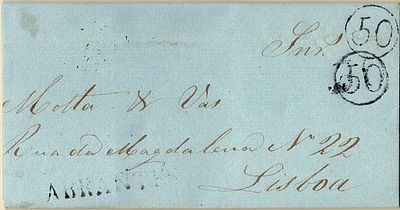 50
Snrs
50
Motta & Vas
Rua da Magdalena Nº 22
Lisboa
ABRANTES